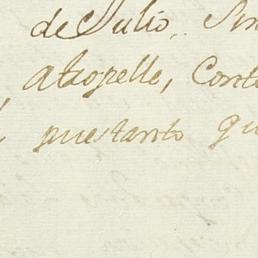 de Julio,. Sin
atropelle, Cont
puestanto qu